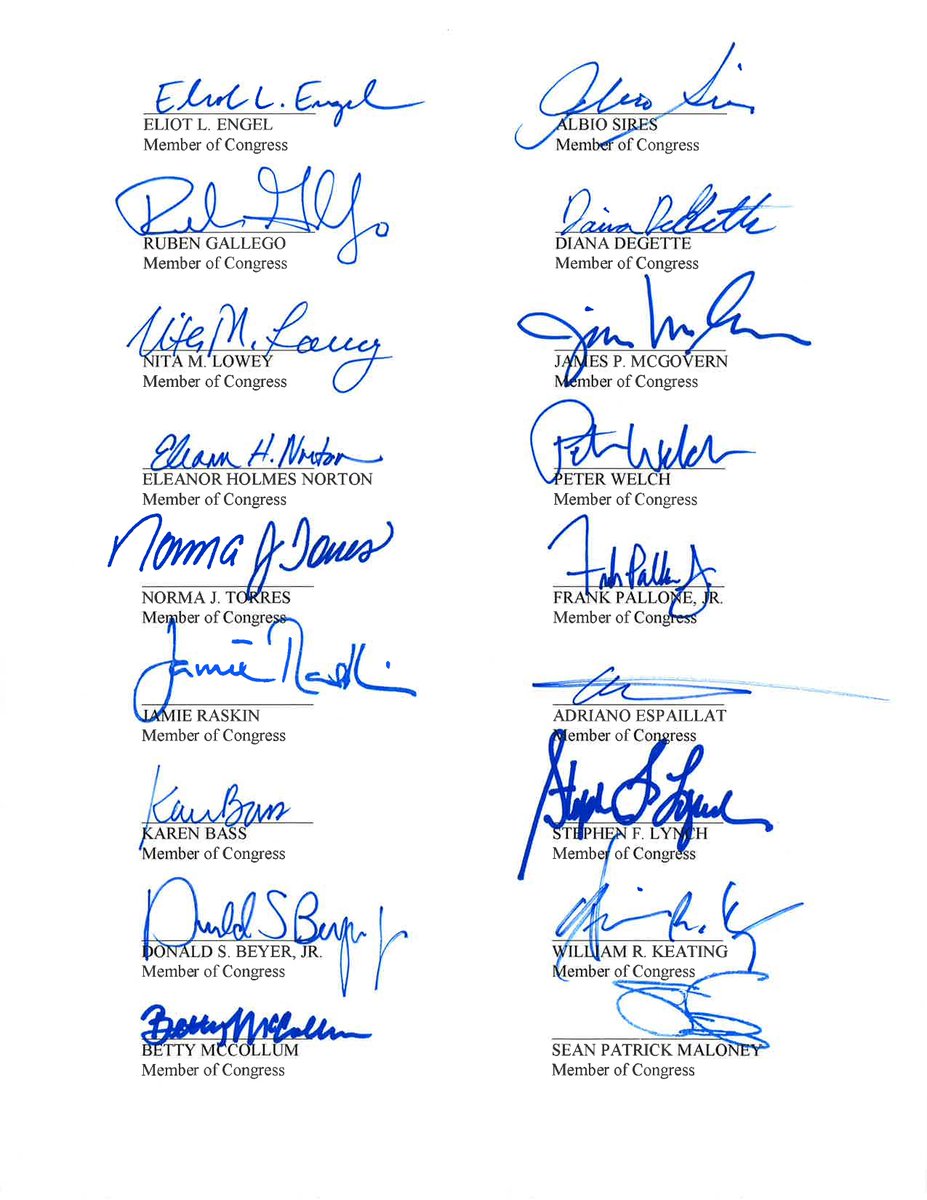 Eliot L. Engel
ELIOT L. ENGEL
Member of Congress
Albio Sires
ALBIO SIRES
Member of Congress
RUBEN GALLEGO
Member of Congress
Diana DeGette
DIANA DEGETTE
Member of Congress
Nita M. Lowey
NITA M. LOWEY
Member of Congress
Jim
JAMES P. MCGOVERN
Member of Congress
Eleanor H. Norton
ELEANOR HOLMES NORTON
Member of Congress
Peter Welch
PETER WELCH
Member of Congress
Norma J Torres
NORMA J. TORRES
Member of Congress
Frank Pallone Jr.
FRANK PALLONE, JR.
Member of Congress
Jamie Raskin
JAMIE RASKIN
Member of Congress
ADRIANO ESPAILLAT
Member of Congress
Karen Bass
KAREN BASS
Member of Congress
Stephen F Lynch
STEPHEN F. LYNCH
Member of Congress
Donald S Beyer Jr
DONALD S. BEYER, JR.
Member of Congress
WILLIAM R. KEATING
Member of Congress
Betty McCollum
BETTY MCCOLLUM
Member of Congress
SEAN PATRICK MALONEY
Member of Congress